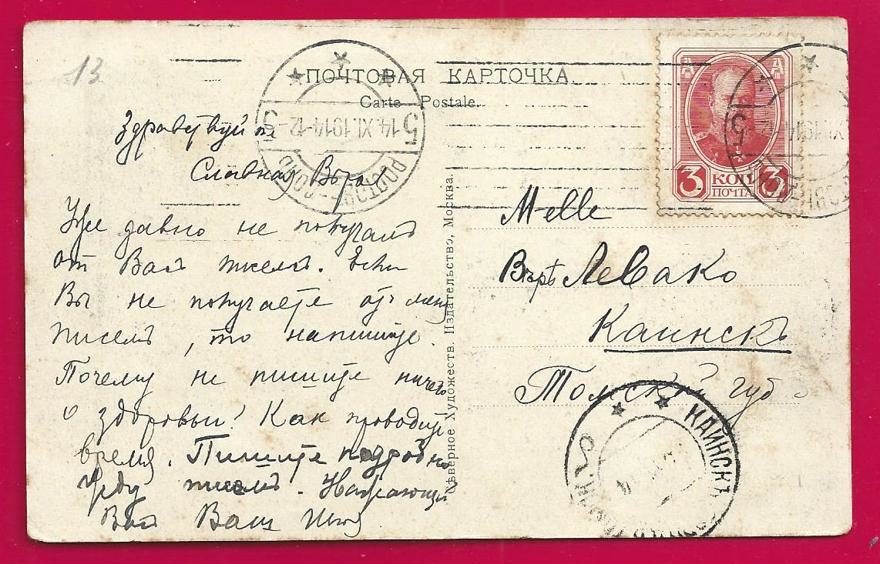 13
ПОЧТОВАЯ КАРТОЧКА
Carte Postale.
14.XI.1914-12
5
3 КОП 3
ПОЧТА
Здравствуй
Славная Вѣра
Уже давно не получалъ
от Васъ писемъ. Если
Вы не получаете отъ меня
писемъ, то напишите.
Почему не пишите ничего
о здоровьи? Как проводите
время. Пишите подробно
Жду писемъ.
Васъ Ваш
Сѣверное Художеств. Издательство, Москва.
M-elle
Вѣрѣ Левако
Каинскъ
Томской губ
КАИНСКЪ